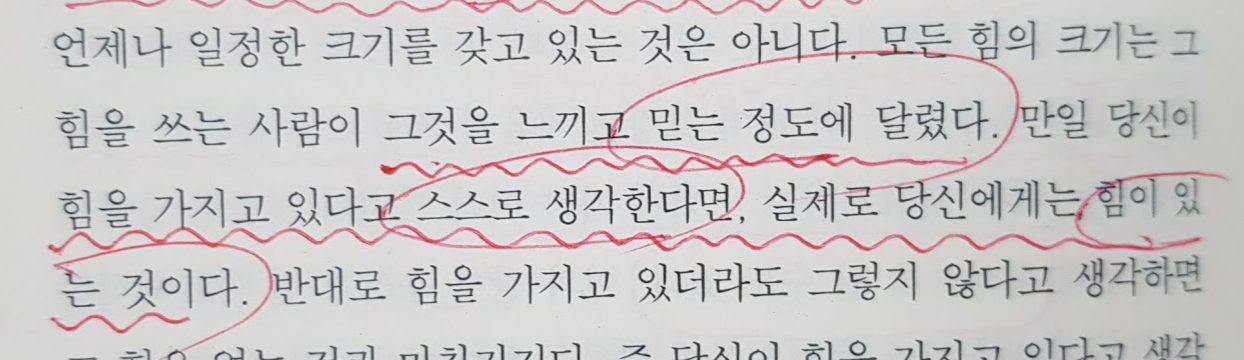 언제나 일정한 크기를 갖고 있는 것은 아니다. 모든 힘의 크기는 그
힘을 쓰는 사람이 그것을 느끼고 믿는 정도에 달렸다. 만일 당신이
힘을 가지고 있다고 스스로 생각한다면, 실제로 당신에게는 힘이 있
는 것이다. 반대로 힘을 가지고 있더라도 그렇지 않다고 생각하면